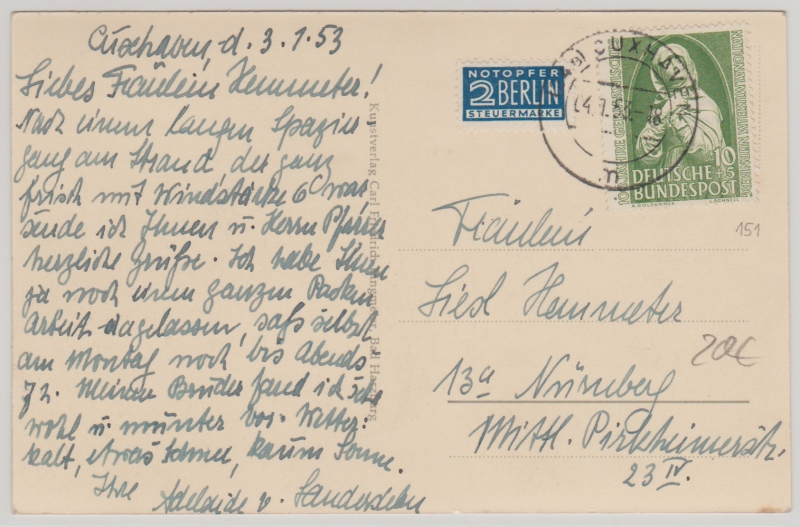 Cuxhaven, d. 3.1.53
Liebes Fräulein Hemmeter!
Nach einem langen Spazier-
gang am Strand, der ganz
frisch mit Windstärke 6 war
sende ich Ihnen u. Herrn Pfarrer
herzliche Grüße. Ich habe Ihnen
ja noch einen ganzen Packen
Arbeit dagelassen, saß selbst
am Montag noch bis Abends
½7. Meinen Bruder fand ich
wohl u. munter vor. Wetter:
kalt, etwas Schnee, kaum Sonne.
Ihre Adelaide v.
Kunstverlag Carl Friedrich
Bad Harzburg
NOTOPFER
2 BERLIN
STEUERMARKE
CUXHAVEN
10+5
DEUTSCHE
BUNDESPOST
NATIONALMUSEUM NÜRNBERG
151
Fräulein
Liesl Hemmeter
20€
13a Nürnberg
Mittl. Pirkheimerstr.
23 IV.